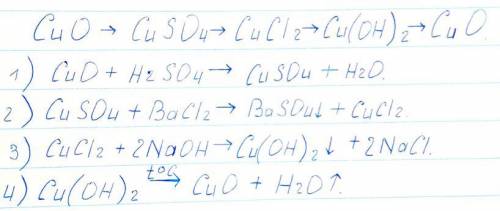 CuO → CuSO4 → CuCl2 → Cu(OH)2 → CuO
1) CuO + H2SO4 → CuSO4 + H2O.
2) CuSO4 + BaCl2 → BaSO4↓ + CuCl2.
3) CuCl2 + 2NaOH → Cu(OH)2↓ + 2NaCl.
4) Cu(OH)2 t°C→ CuO + H2O↑.